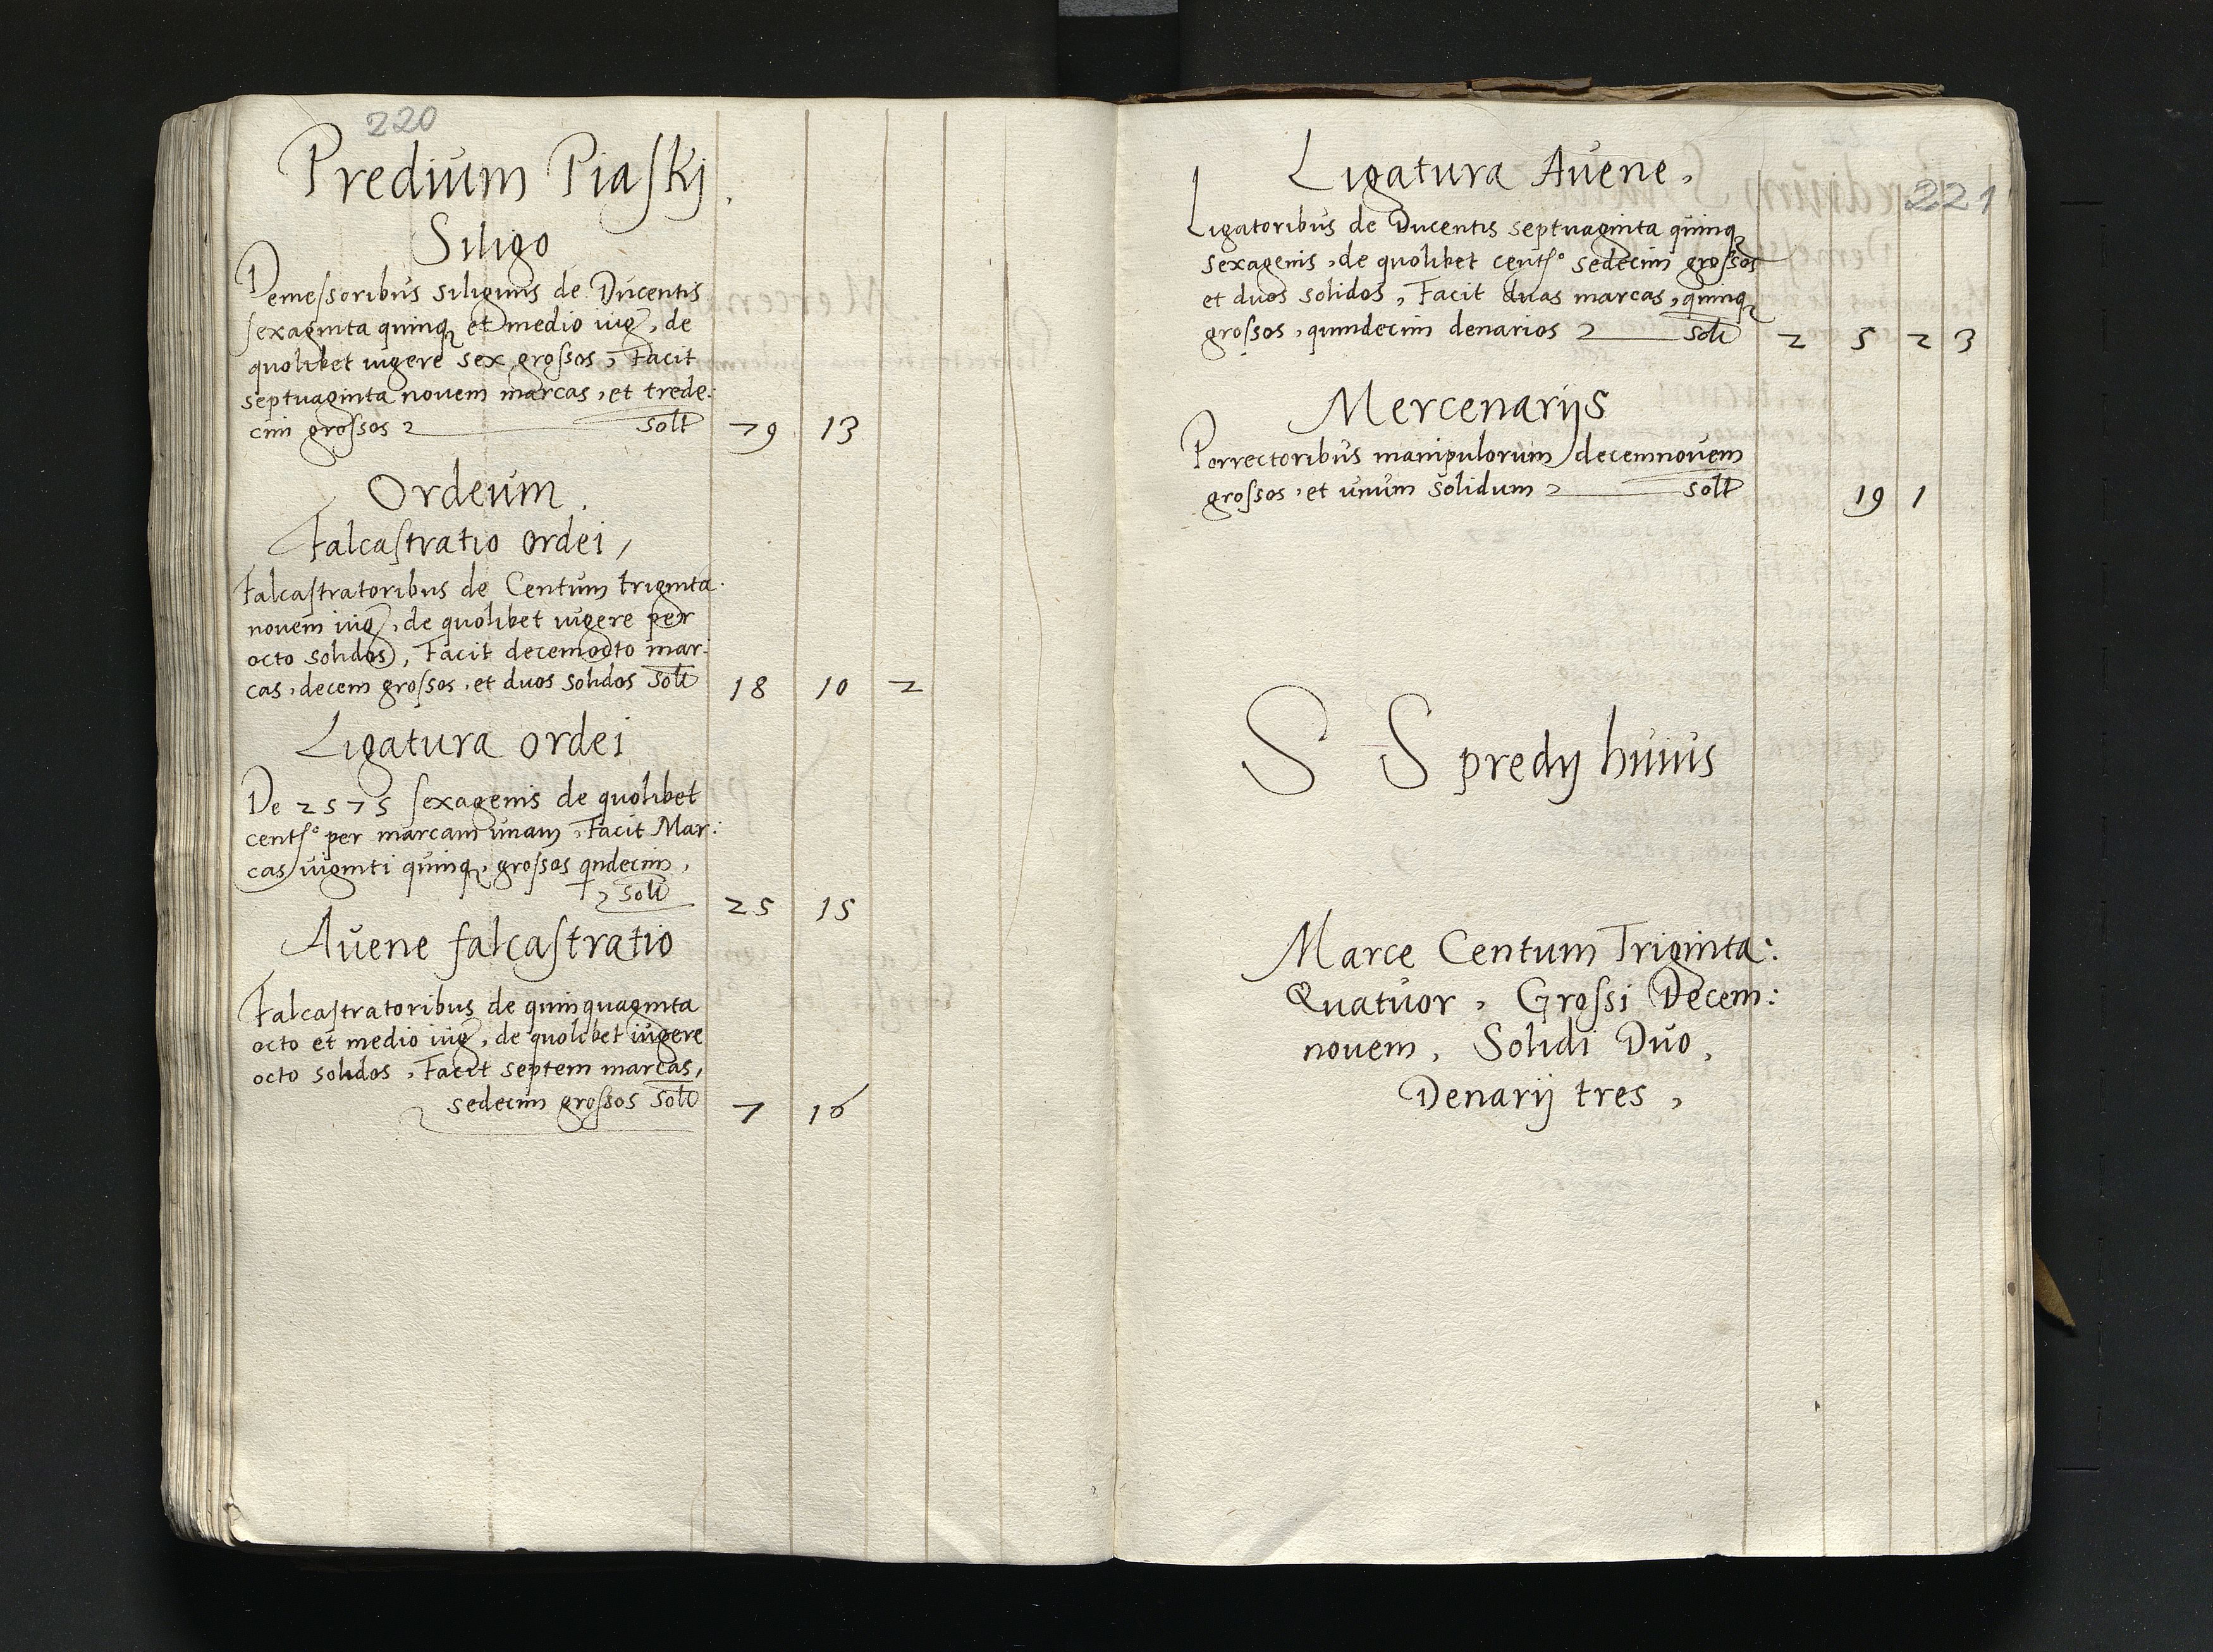 220
Predium Piaskj.
Siligo
Demessoribus siliginis de Ducentis
sexaginta quinq et medio iug, de
quolibet iugere sex grossos, Facit
septuaginta novem marcas, et trede:
cim grossos solt 79 13
Ordeum.
Falcastratio ordei,
Falcastratoribus de Centum triginta
novem iug, de quolibet iugere per
octo solidos, Facit decemocto mar:
cas, decem grossos, et duos solidos solt 18 10 2
Ligatura ordei
De 2575 sexagenis de quolibet
centso per marcam unam, Facit Mar:
cas viginti quinq, grossos qndecim,
solt 25 15
Avene falcastratio
Falcastratoribus de quinquaginta
octo et medio iug, de quolibet iugere
octo solidos, Facit septem marcas,
sedecim grossos solt 7 16
221
Ligatura Avene,
Ligatoribus de Ducentis septuaginta quinq
sexagenis, de quolibet centso sedecim grossos
et duos solidos, Facit duas marcas, quinq
grossos, quindecim denarios solt 2 5 2 3
Mercenarijs
Porrectoribus manipulorum decemnovem
grossos, et unum solidum solt 19 1
S S predij huius
Marce Centum Triginta:
Quatuor, Grossi Decem:
novem, Solidi Duo,
Denarij tres,